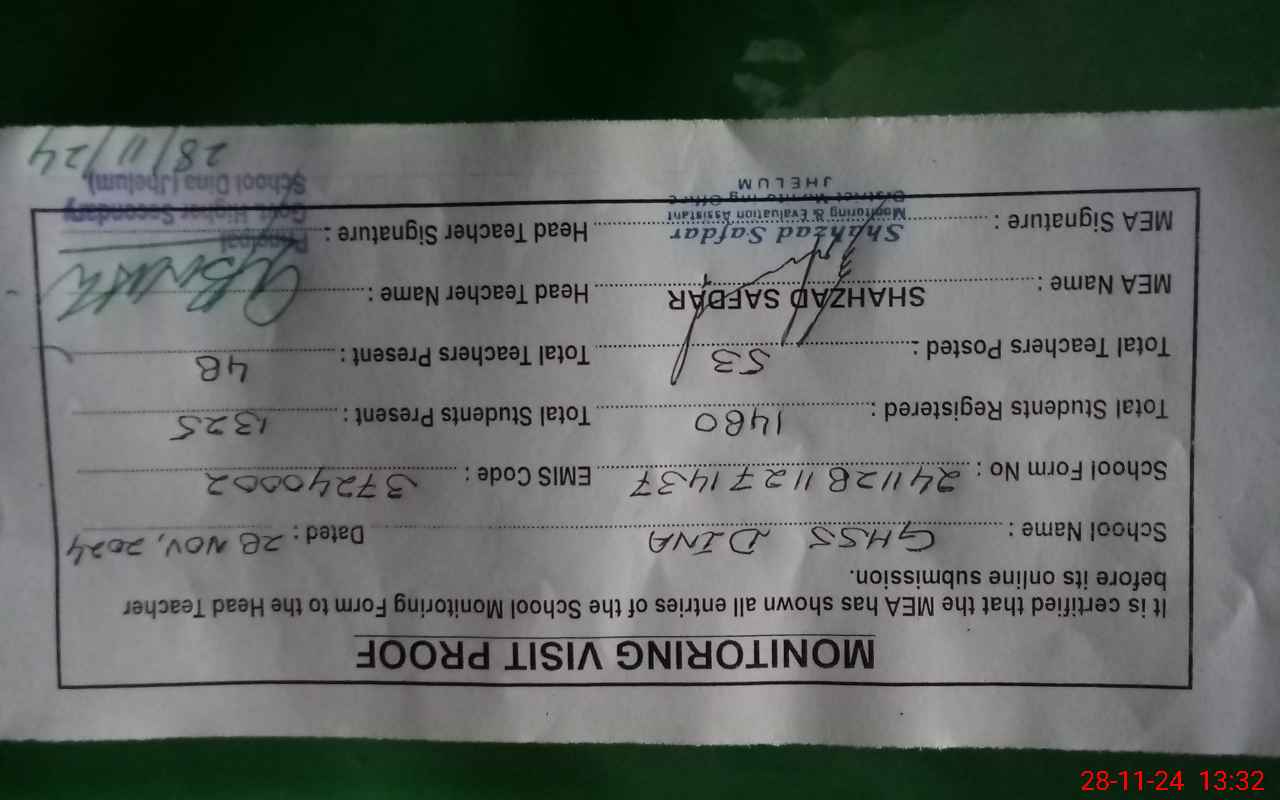 MONITORING VISIT PROOF
It is certified that the MEA has shown all entries of the School Monitoring Form to the Head Teacher
before its online submission.
School Name : GHSS DINA Dated : 28 NOV, 2024
School Form No : 24112811271437 EMIS Code : 37240002
Total Students Registered : 1480 Total Students Present : 1325
Total Teachers Posted : 53 Total Teachers Present : 48
MEA Name : SHAHZAD SAFDAR Head Teacher Name :
MEA Signature : Head Teacher Signature :
Shahzad Safdar
Monitoring & Evaluation Assistant
District Monitoring Office
JHELUM
Principal
Govt. Higher Secondary
School Dina (Jhelum)
28/11/24
28-11-24 13:32